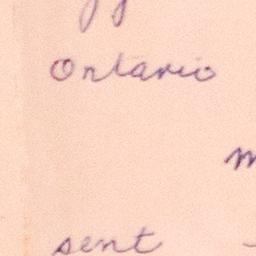 Ontario
sent